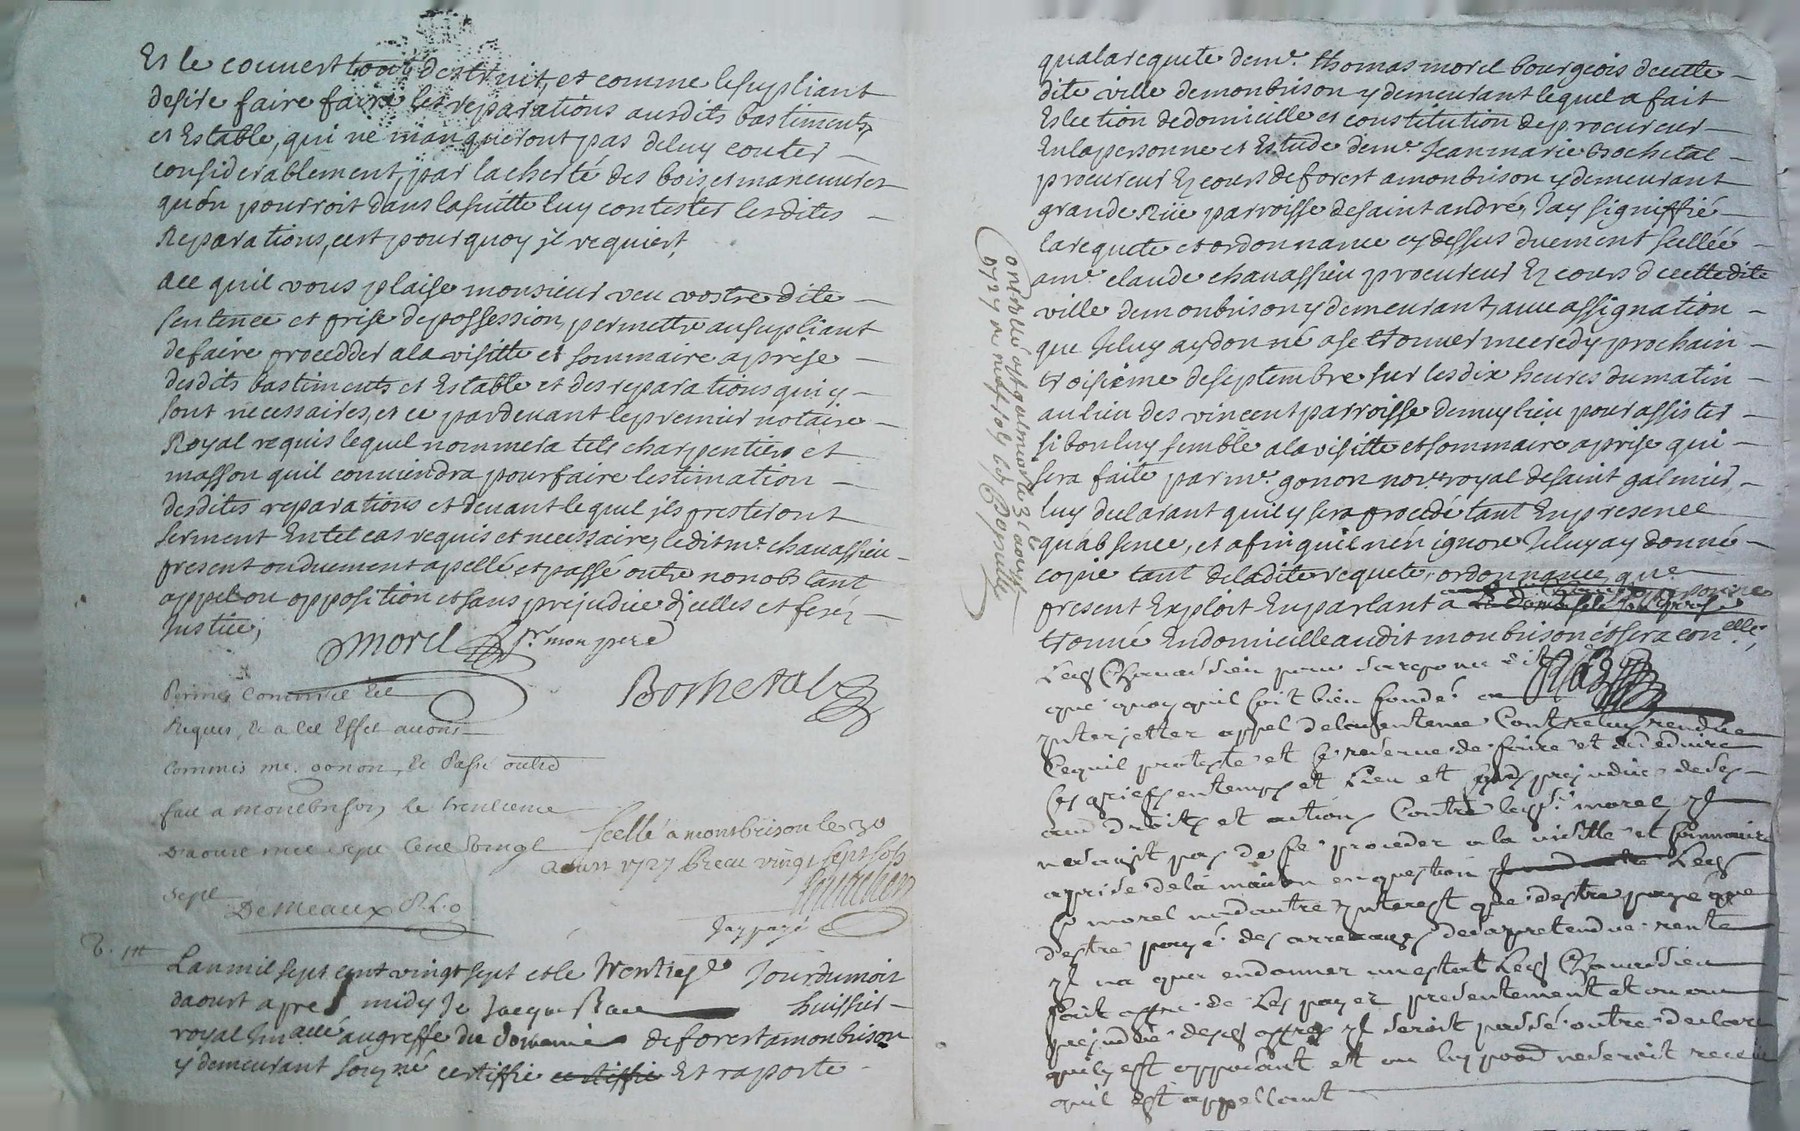 Et le couvert tout destruit, et comme le supliant
desire faire faire les reparations ausdits bastiments,
et Estable, qui ne manqueront pas deluy couter
considerablement, par la cherté des bois et manœuvres
quon pourroit dans lasuitte luy contester lesdites
Reparations, cest pourquoy jl requiert,
ace quil vous plaise monsieur veu vostre dite
sentence et prise depossession, permettre ausupliant
defaire procedder ala visitte et sommaire aprise
desdits bastiments et Estable et des reparations qui y
sont necessaires, et ce pardevant lepremier notaire
Royal requis lequel nommera tels charpentiers et
masson quil conviendra pour faire lestimation
desdites reparations et devant lequel jls presteront
serment Entel cas requis et necessaire, ledit me. chavassieu
present ou duement apellé, et passé outre nonobstant
appel ou opposition et sans prejudice djcelles et ferés
Justice;
morel pr. mon pere
Bochetal
Permis Comme Est
Requis, Et a Cet Effet avons
Commis me. gonon, Et Passé outre
fait a Montbrison le trentieme
Daoust mil sept Cent vingt
sept
DeMeaux P. L. g.
scellé a montbrison le 30
aoust 1727 Receu vingt sept sols
Jay payé
Lan mil sept cent vingt sept et le trentiesme Jour du mois
daoust apres midy Je Jacque huissier
royal au greffe du domaine deforest amonbrison
y demeurant soigné certiffie certiffie Et raporte
qualarequete deme. thomas morel bourgeois decette
dite ville demonbrison y demeurant lequel a fait
Eslection dedomicille et constitution deprocureur
Enlapersonne et Estude deme. Jean marie Bochetal
procureur Es cours deforest amonbrison y demeurant
grande Rüe parroisse desaint andré, Jay signiffié
larequete et ordonnance cy dessus duement scellée
ame. claude chavassieu procureur Es cours decette dite
ville demonbrison y demeurant, avec assignation
que Jeluy ay donné ase trouver mecredy prochain
troisieme deseptembre sur les dix heures dumatin
aulieu des vincent parroisse demeylieu pour assister
si bon luy semble ala visitte et sommaire aprise qui
sera faite par me. gonon nore. royal desaint galmier,
luy declarant quil y sera procedé tant Enpresence
quabsence, et afin quil nen ignore Jeluy ay donné
copie tant deladite requete, ordonnance, que
present Exploit Enparlant a sa personne
trouvé Endomicille audit monbrison et sera conellé;
Ledt Chavassieu pour sa reponce dit
que quoy quil soit bien fondé a
jnterjetter appel delasentence Contre luy rendüe
Cequil proteste et se reserve de faire et de deduire
ses griefs entemps et Lieu et sans prejudice de ses
aud droits et actions Contre ledt sr. morel jl
nesagit pas de se proceder a la visitte et sommaire
aprise dela maison enquestion Ledt
sr morel nadautre jnterest que destre payé que
destre payé des arrerages desapretendue rente
jl na qua endonner unestat Ledt Chavassieu
fait offre de Les payer presentement et ou au
prejudice desdt offres jl seroit passé outre declare
quily est opposant et ou luy pood neseroit receu
quil est appellant
Controllé a St galmier le 31 aoust
1727 R neuf sols